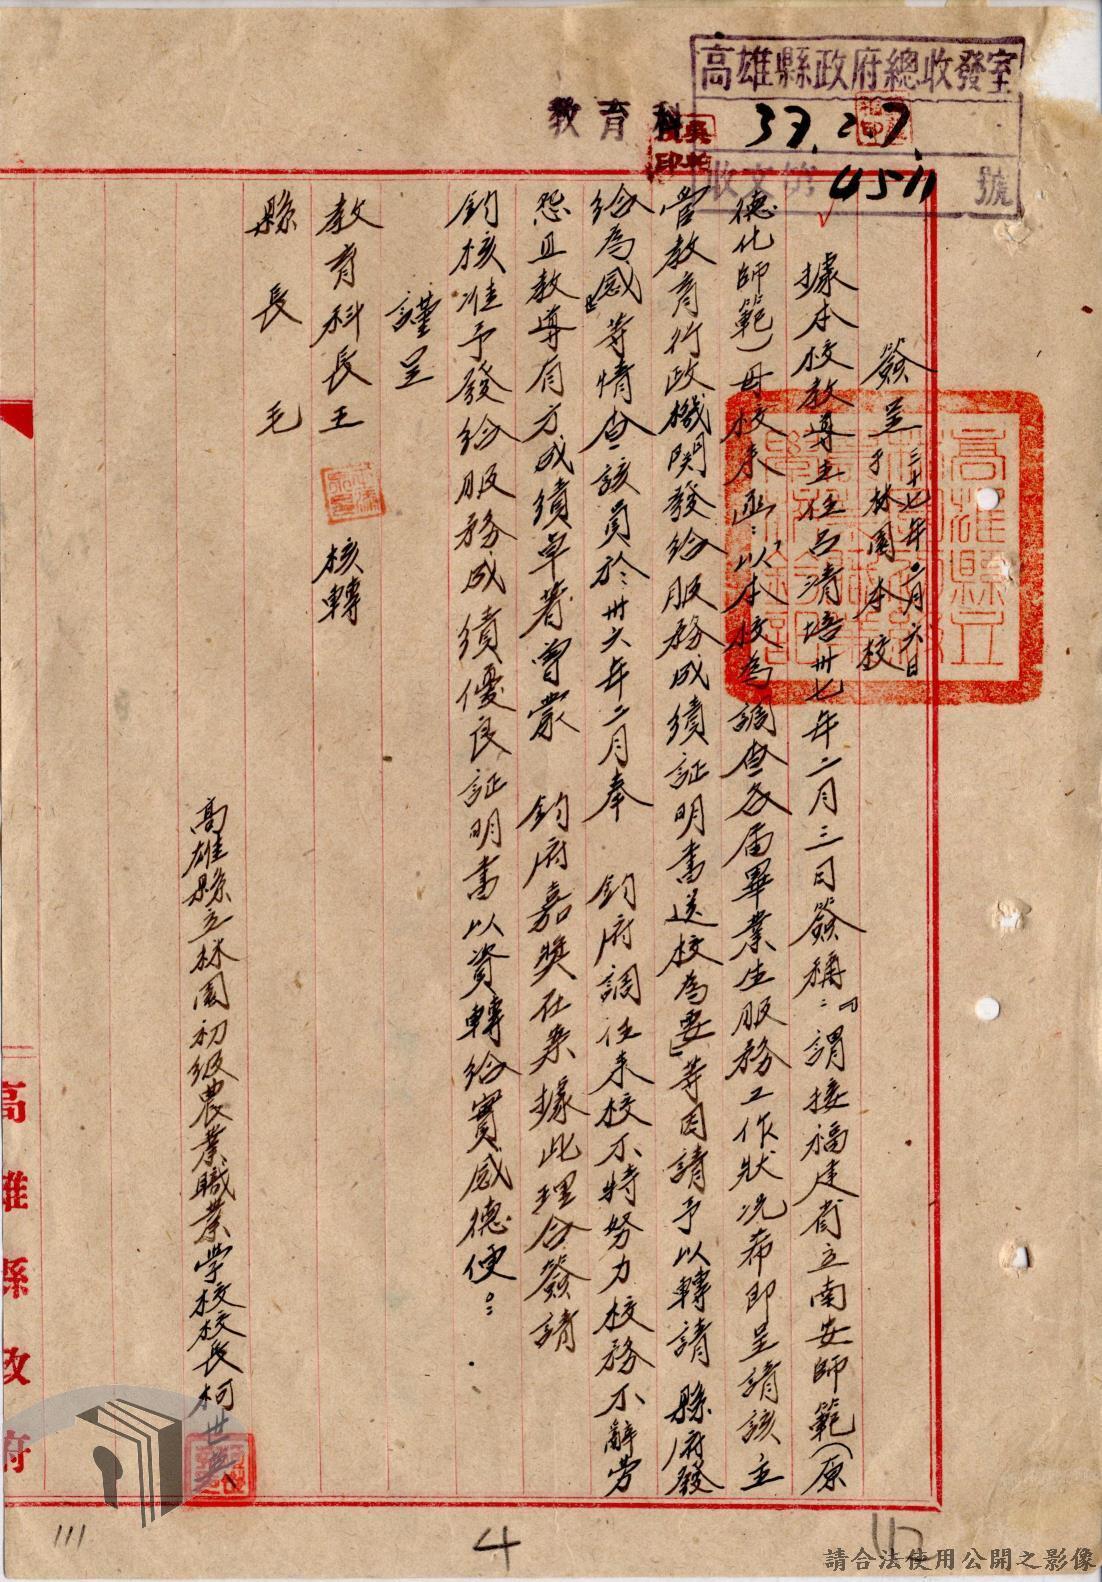 高雄縣政府總收發室
37.2.7.
收文第4511號
教育科
簽呈 三十七年二月六日
于林園本校
據本校教導主任呂清培卅七年二月三日簽稱：『謂接福建省立南安師範（原
德化師範）母校來函：「以本校為調查各屆畢業生服務工作狀況希即呈請該主
管教育行政機関發給服務成績証明書送校為要」等因請予以轉請 縣府發
給為感』等情查該員於：卅六年二月奉 鈞府調任來校不特努力校務不辭劳
怨且教導有方成績卓著曾蒙 鈞府嘉獎在案據此理合簽請
鈞核准予發給服務成績優良証明書以資轉給實感德便：
謹呈
教育科長王 核轉
縣長毛
高雄縣立林園初级農業職業学校校長柯世
高雄縣政府
111
4
112
請合法使用公開之影像